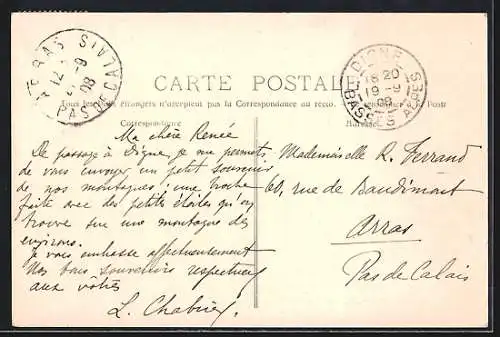 CARTE POSTALE
Tous les pays étrangers n'acceptent pas la Correspondance au recto. Poste
Correspondance
Adresse
ARRAS
12
-9
08
PAS DE CALAIS
DIGNE
18 20
19 -9
08
BASSES ALPES
Ma chère Renée
De passage à Digne, je me permets
de vous envoyer un petit souvenir
de nos montagnes; une broche
faite avec des petites étoiles qu'on
trouve sur une montagne des
environs.
Je vous embrasse affectueusement
Nos bons souvenirs respectueux
aux vôtres
L. Chabrier
Mademoiselle R. Ferrand
60, rue de Baudimont
Arras
Pas de Calais